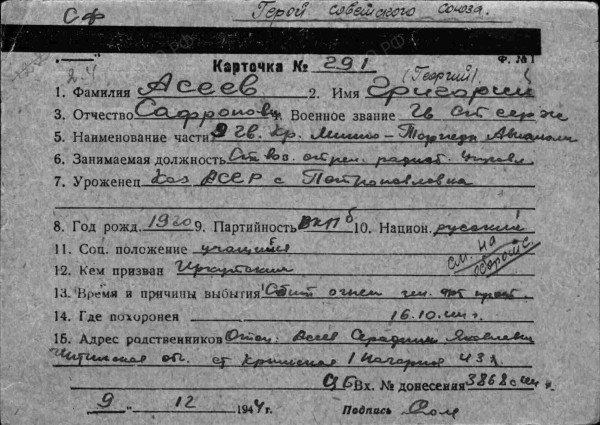 Герой советского союза.
С Ф
Ф. №1
Карточка № 291
(Георгий).
1. Фамилия Асеев 2. Имя Григорий
3. Отчество Сафронов. 4. Военное звание Гв Ст серж
5. Наименование части 9 Гв. Кр. Минно-Торпеда Авиаполк
6. Занимаемая должность Ст воз. стрел. радист. управл
7. Уроженец Каз АССР с Петропавловка
8. Год рожд. 1920 9. Партийность ВКПб 10. Национ. русский
11. Соц. положение учащийся
см. на обороте
12. Кем призван Иркутским
13. Время и причины выбытия Сбит огнем
14. Где похоронен 16.10.44г.
15. Адрес родственников Отец: Асеев Яковлевич
Читинская обл. ст 1 43 1
Вх. № донесения 3868
9 " 12 1944г. Подпись